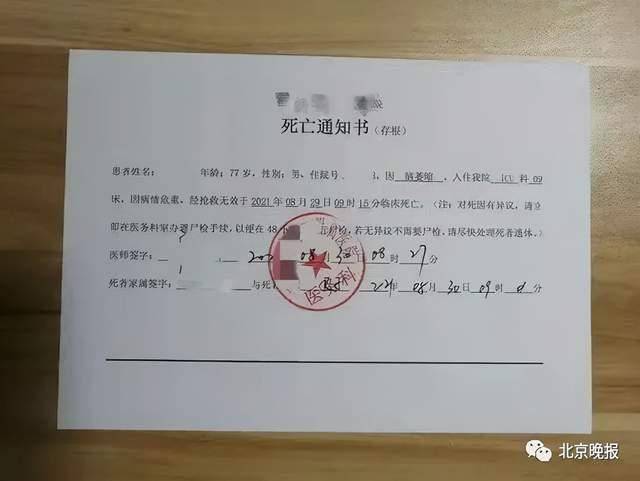 死亡通知书(存根)
患者姓名: 年龄:77岁,性别:男、住院号 ,因 ,入住我院 ICU 科 09
床,因病情危重,经抢救无效于 2021 年 08 月 29 日 09 时 15 分临床死亡。(注:对死因有异议,请立
即在医务科室办理尸检手续,以便在 48 尸检,若无异议不需要尸检,请尽快处理死者遗体。)
医师签字: 08 月 30 08 时 27 分
死者家属签字: 与死 年 08 月 30 日 09 时 分
医务科
北京晚报